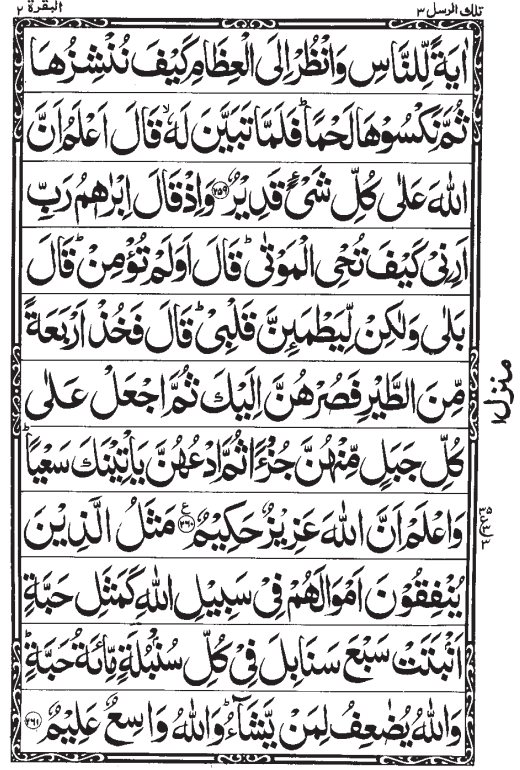 تلك الرسل ٣
البقرة ٢
اٰيَةً لِّلنَّاسِ وَانْظُرْ اِلَى الْعِظَامِ كَيْفَ نُنْشِزُهَا
ثُمَّ نَكْسُوْهَا لَحْمًا ؕ فَلَمَّا تَبَيَّنَ لَهٗ ۙ قَالَ اَعْلَمُ اَنَّ
اللّٰهَ عَلٰى كُلِّ شَيْءٍ قَدِيْرٌ ﴿۲۵۹﴾ وَاِذْ قَالَ اِبْرٰهٖمُ رَبِّ
اَرِنِيْ كَيْفَ تُحْيِ الْمَوْتٰى ؕ قَالَ اَوَلَمْ تُؤْمِنْ ؕ قَالَ
بَلٰى وَلٰكِنْ لِّيَطْمَئِنَّ قَلْبِيْ ؕ قَالَ فَخُذْ اَرْبَعَةً
مِّنَ الطَّيْرِ فَصُرْهُنَّ اِلَيْكَ ثُمَّ اجْعَلْ عَلٰى
كُلِّ جَبَلٍ مِّنْهُنَّ جُزْءًا ثُمَّ ادْعُهُنَّ يَاْتِيْنَكَ سَعْيًا ؕ
وَاعْلَمْ اَنَّ اللّٰهَ عَزِيْزٌ حَكِيْمٌ ﴿۲۶۰﴾ ع مَثَلُ الَّذِيْنَ
يُنْفِقُوْنَ اَمْوَالَهُمْ فِيْ سَبِيْلِ اللّٰهِ كَمَثَلِ حَبَّةٍ
اَنْۢبَتَتْ سَبْعَ سَنَابِلَ فِيْ كُلِّ سُنْۢبُلَةٍ مِّائَةُ حَبَّةٍ ؕ
وَاللّٰهُ يُضٰعِفُ لِمَنْ يَّشَآءُ ؕ وَاللّٰهُ وَاسِعٌ عَلِيْمٌ ﴿۲۶۱﴾
منزل ۱